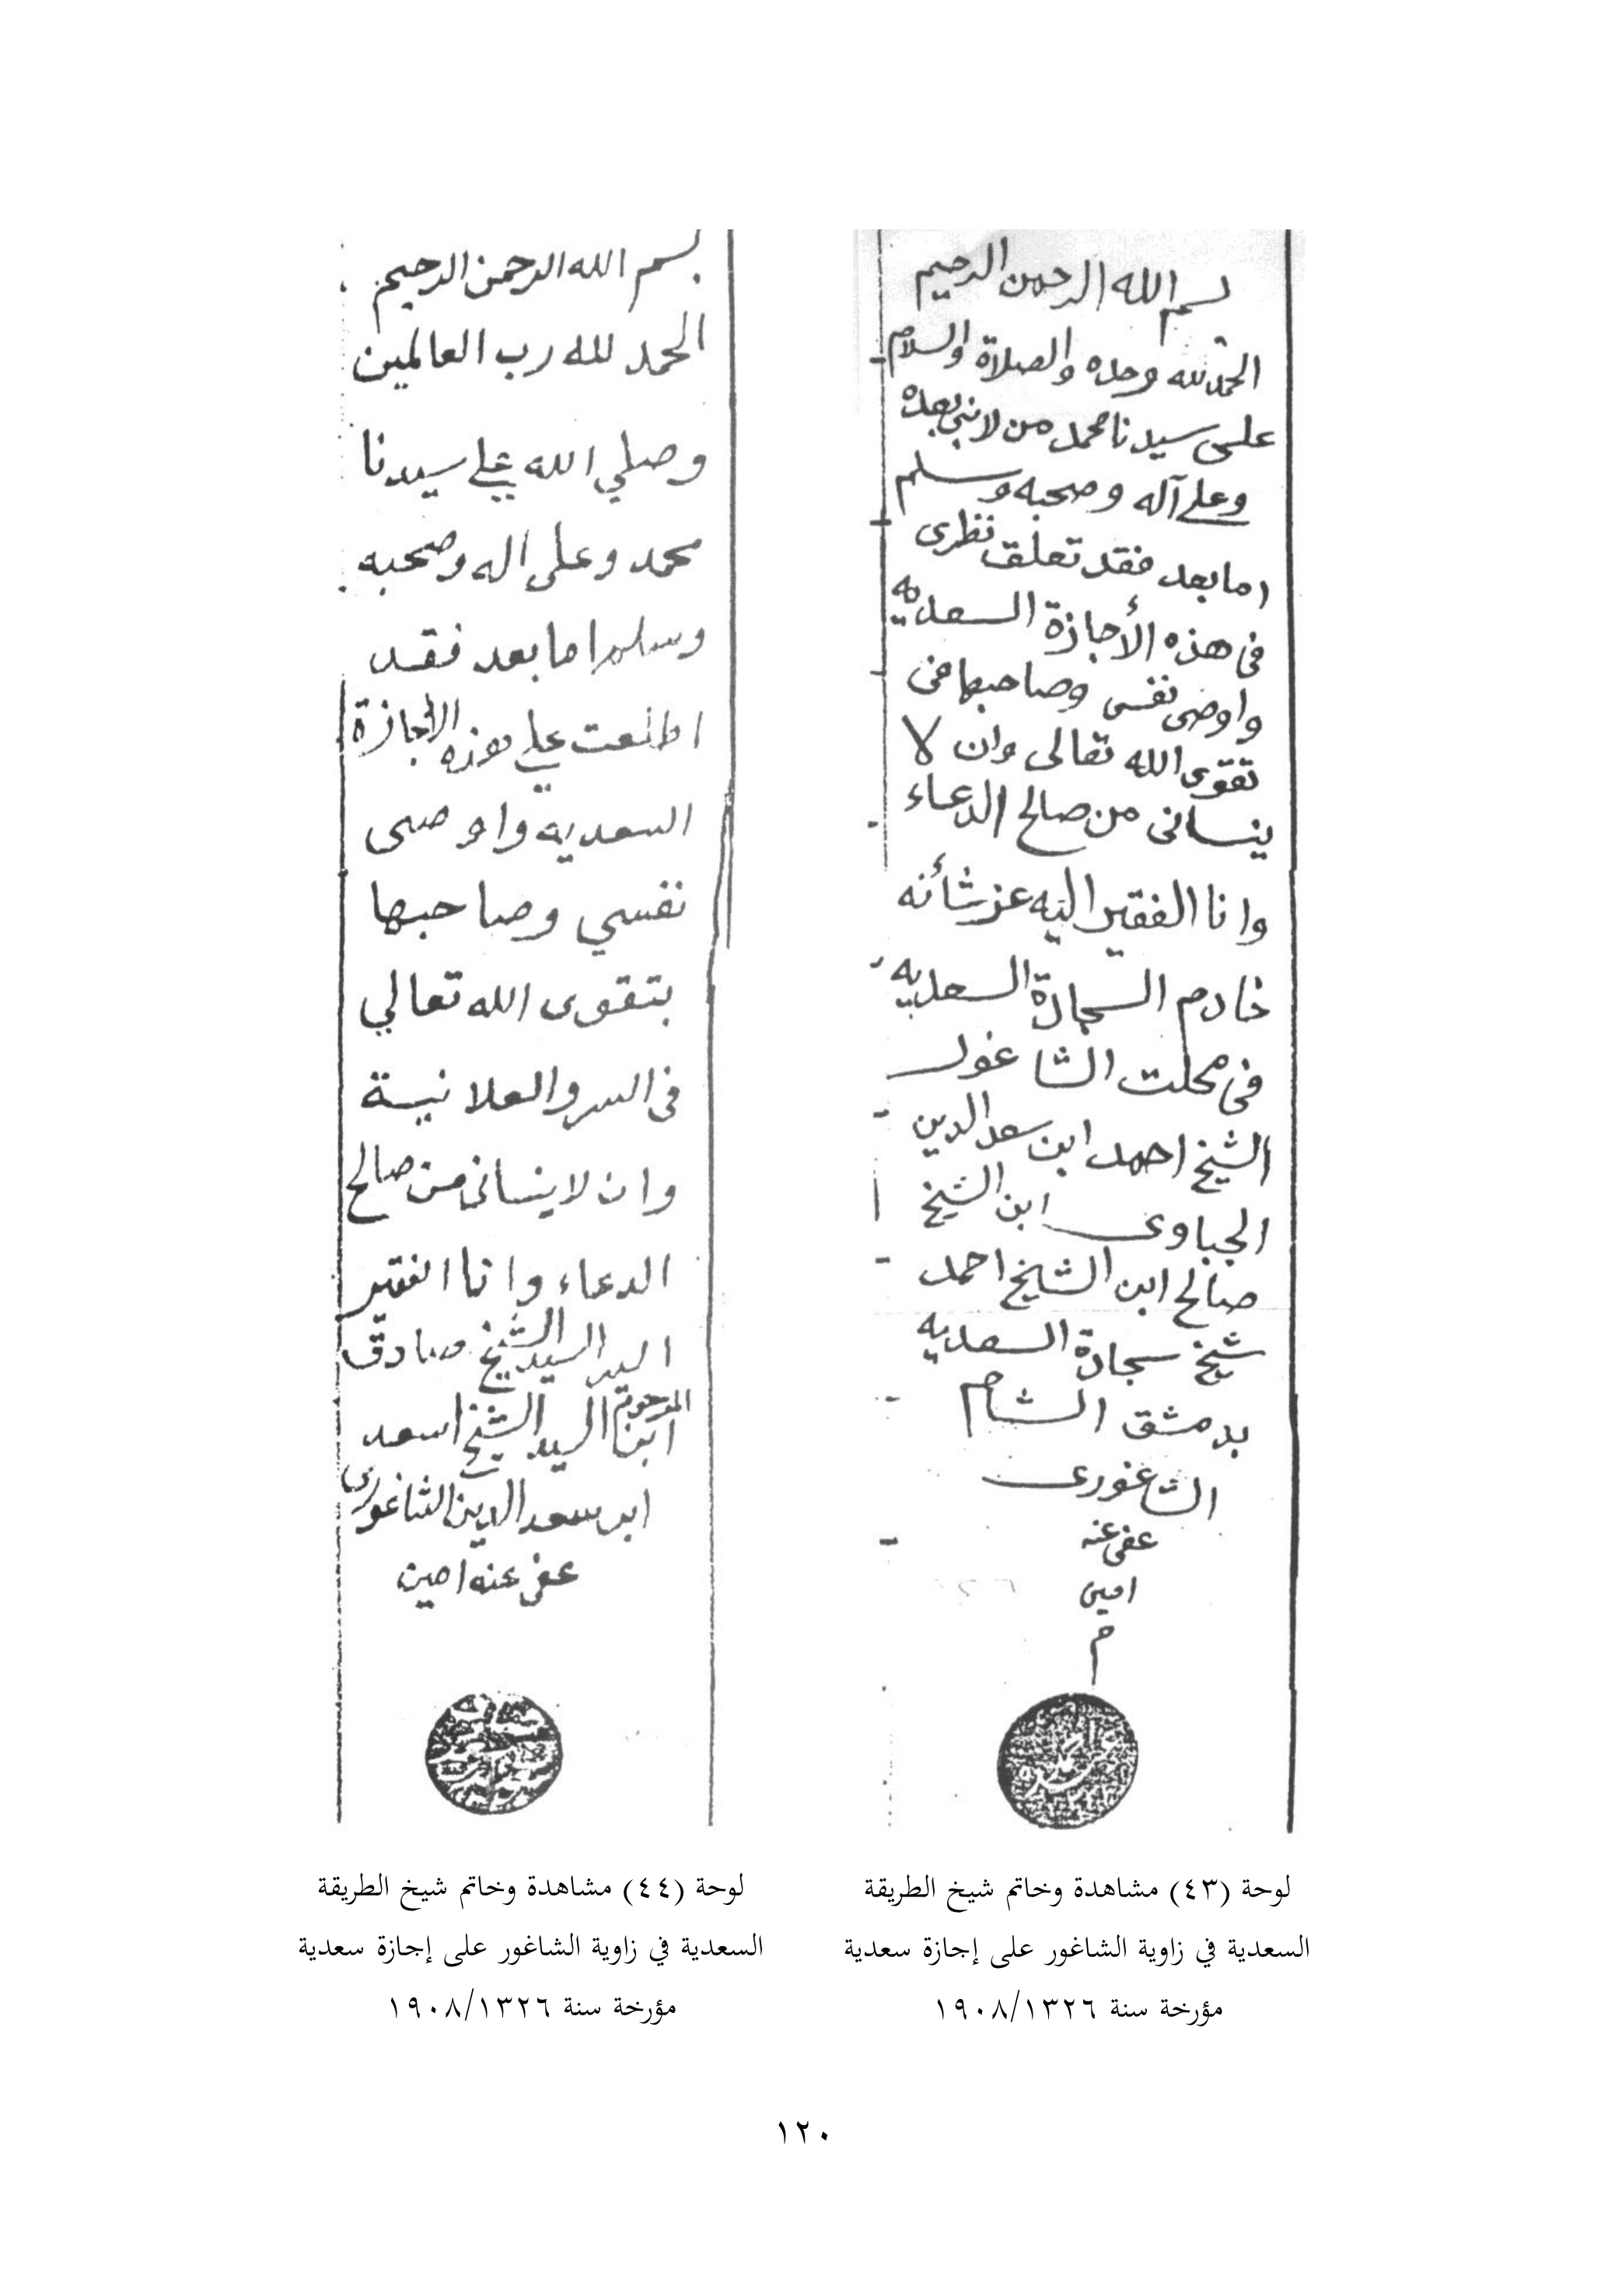 بسم الله الرحمن الرحيم
الحمد لله وحده والصلاة والسلام
على سيدنا محمد من لا نبي بعده
وعلى آله وصحبه وسلم
اما بعد فقد تعلق نظرى
فى هذه الأجازة السعديه
واوصى نفسى وصاحبها فى
تقوى الله تعالى وان لا
ينسانى من صالح الدعاء
وانا الفقير اليه عز شأنه
خادم السجادة السعديه
فى محلت الشاغور
الشيخ احمد ابن سعد الدين
الجباوى ابن الشيخ
صالح ابن الشيخ احمد
شيخ سجادة السعديه
بدمشق الشام
الشاغورى
عفى عنه
امين
م
لوحة (٤٣) مشاهدة وخاتم شيخ الطريقة
السعدية في زاوية الشاغور على إجازة سعدية
مؤرخة سنة ١٩٠٨/١٣٢٦
بسم الله الرحمن الرحيم
الحمد لله رب العالمين
وصلي الله علي سيدنا
محمد وعلى اله وصحبه
وسلم اما بعد فقد
اطلعت علي هذه الأجازة
السعديه واوصى
نفسي وصاحبها
بتقوى الله تعالي
فى السر والعلانية
وان لا ينسانى من صالح
الدعاء وانا الفقير
اليه السيد الشيخ صادق
ابن المرحوم السيد الشيخ اسعد
ابن سعد الدين الشاغورى
عفى عنه امين
لوحة (٤٤) مشاهدة وخاتم شيخ الطريقة
السعدية في زاوية الشاغور على إجازة سعدية
مؤرخة سنة ١٩٠٨/١٣٢٦
١٢٠